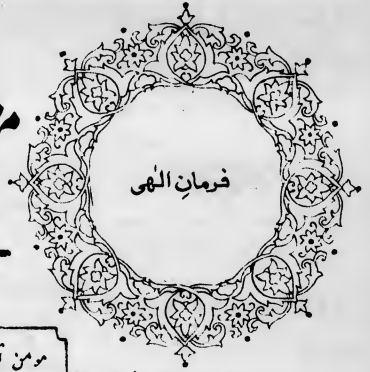 فرمانِ الٰہی
مومن